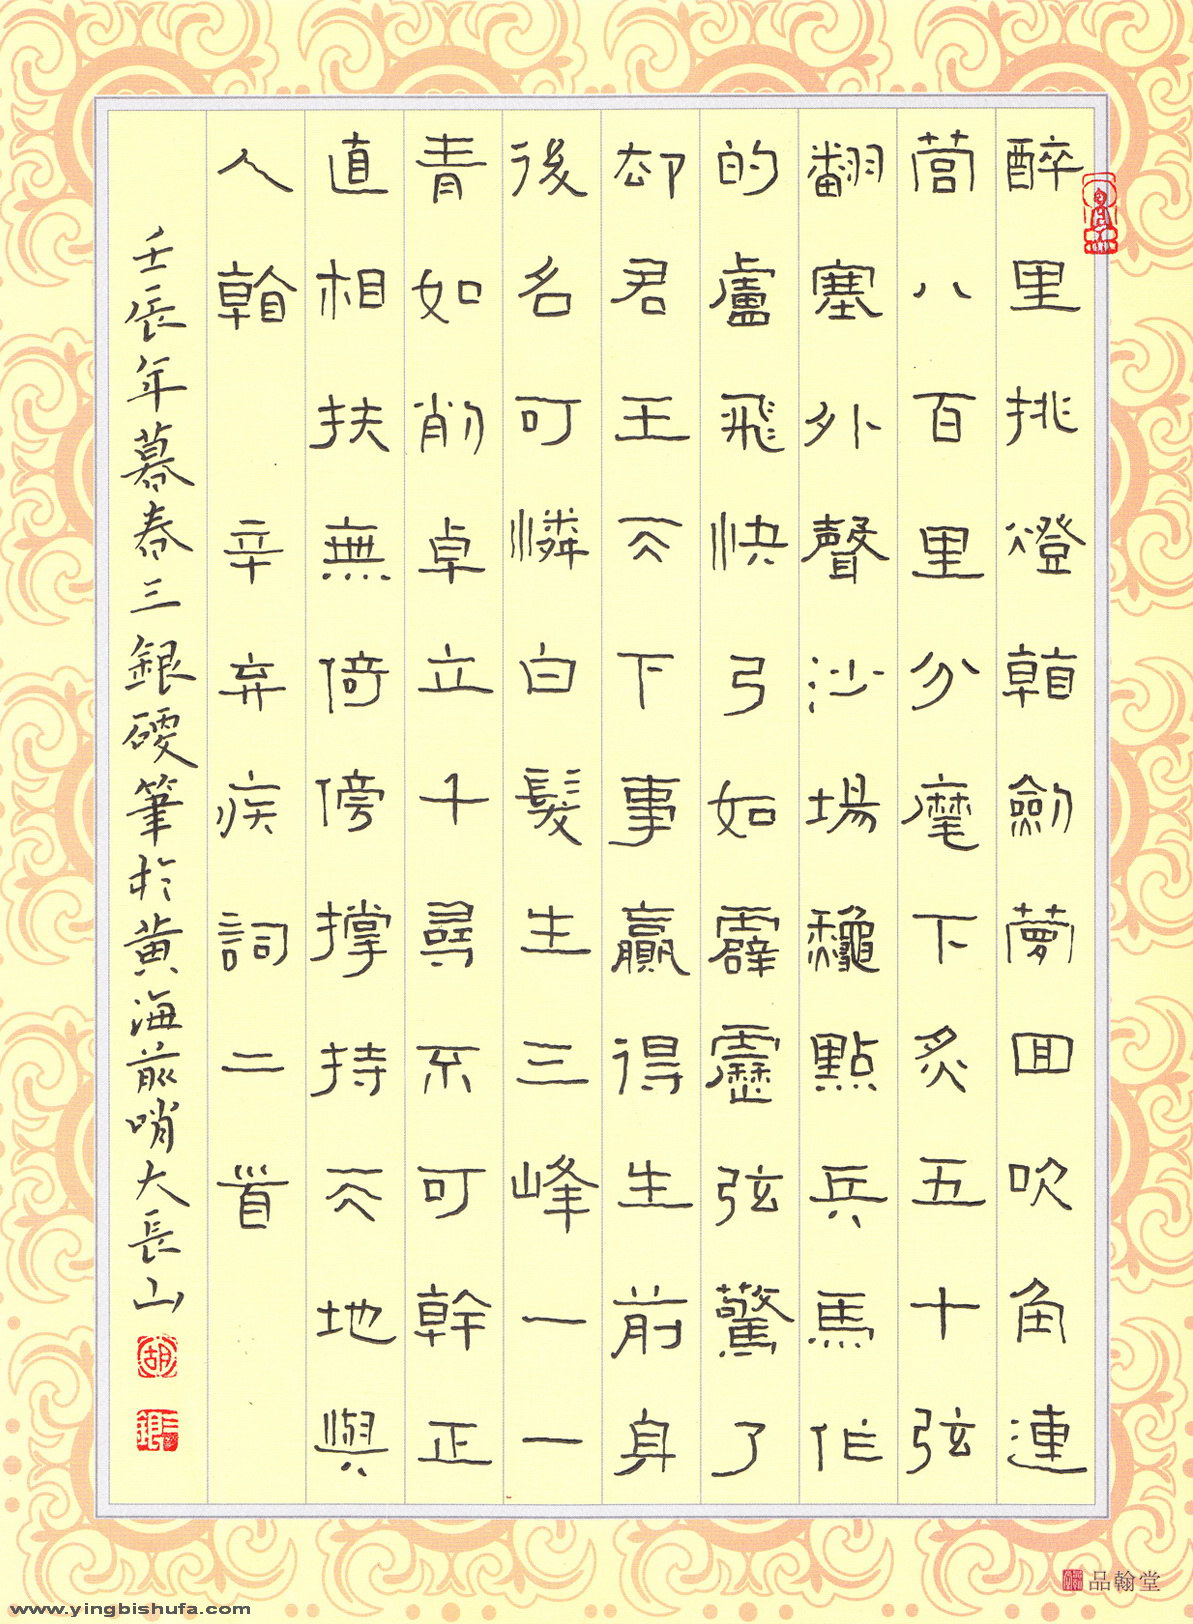 醉里挑燈看劍夢囬吹角連
營八百里分麾下炙五十弦
翻塞外聲沙場龝點兵馬作
的盧飛快弓如霹靂弦驚了
却君王天下事贏得生前身
後名可憐白髮生三峰一一
青如削卓立千尋不可幹正
直相扶無倚傍撐持天地與
人看 辛弃疾詞二首
壬辰年暮春三銀硬筆於黃海前哨大長山
胡
三銀
品翰堂
www.yingbishufa.com